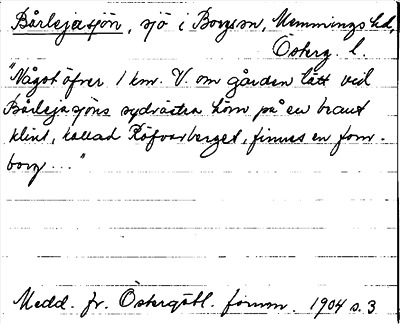 Bårlejasjön, sjö i Borgsm, Memmings hd,
Österg. l.
"Något öfver 1 km. V. om gården Lått vid
Bårlejasjöns sydvästra hörn på en brant
klint, kallad Röfvarberget, finnes en forn-
borg ..."
Medd. fr. Östergötl. fornm. 1904 s. 3